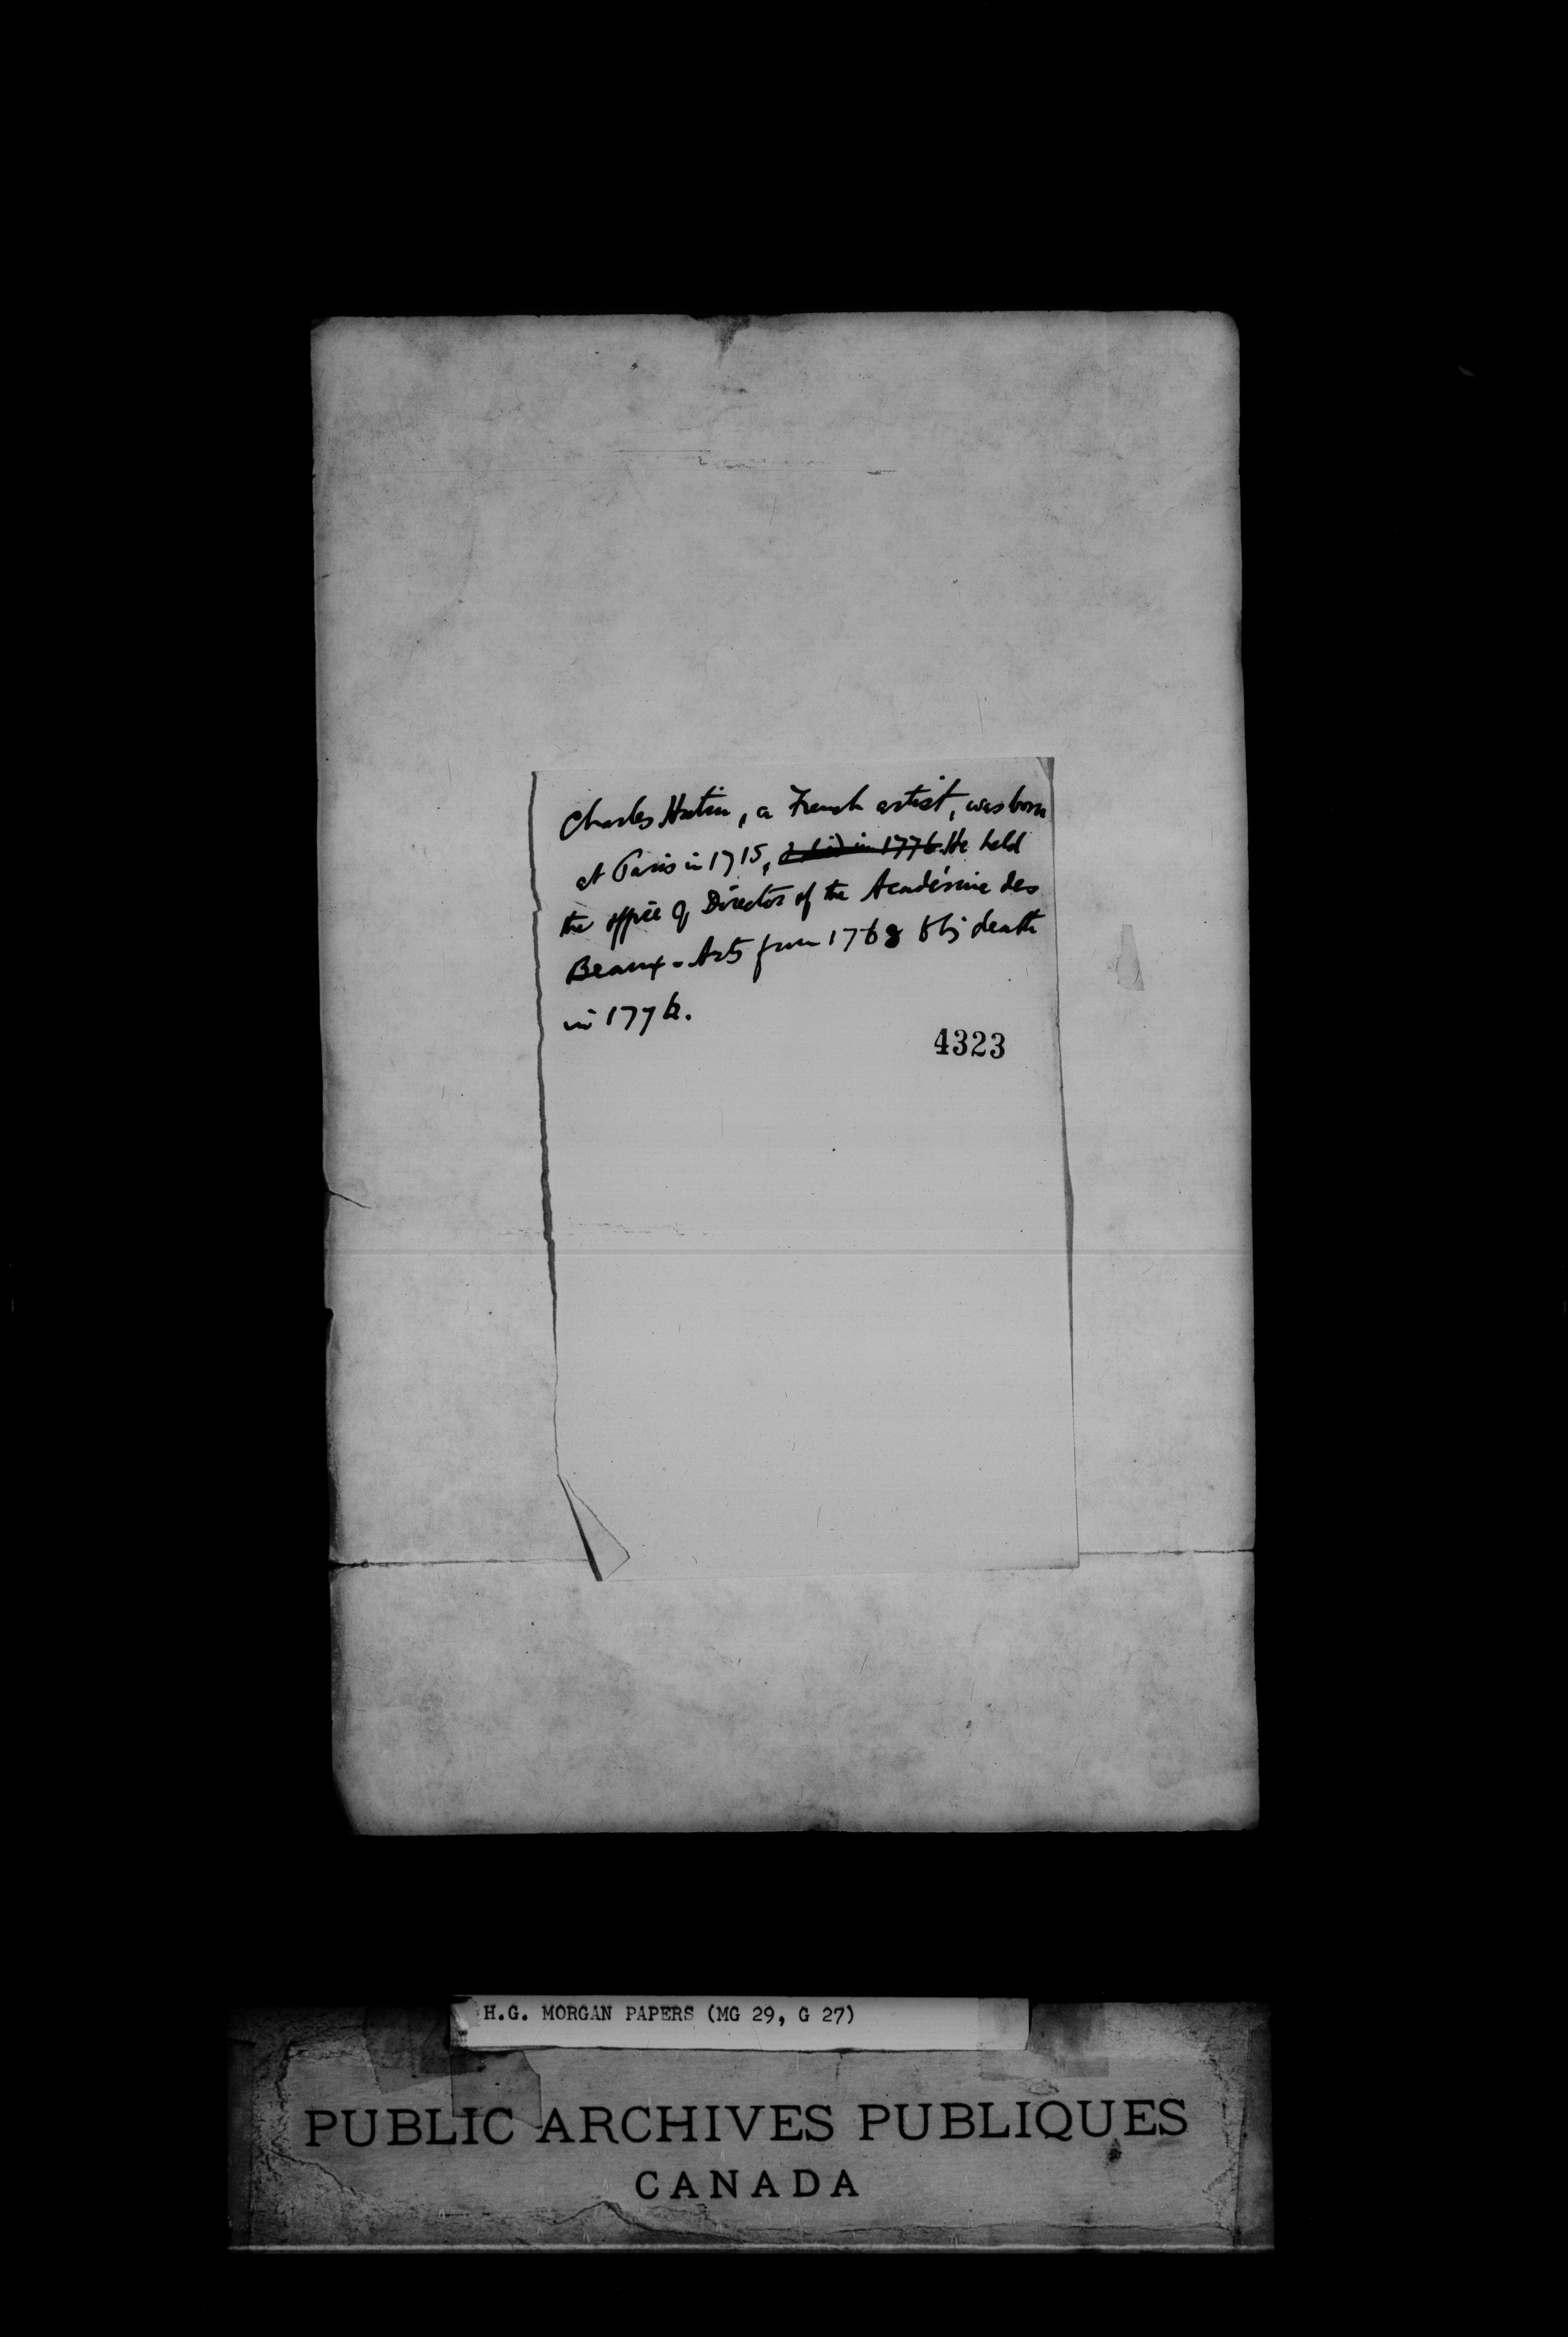 Charles Hutin, a French artist, was born
at Paris in 1715, & died in 1776. He held
the office of Director of the Académie des
Beaux-Arts from 1768 to his death
in 1776.
4323
H.G. MORGAN PAPERS (MG 29, G 27)
PUBLIC ARCHIVES PUBLIQUES
CANADA